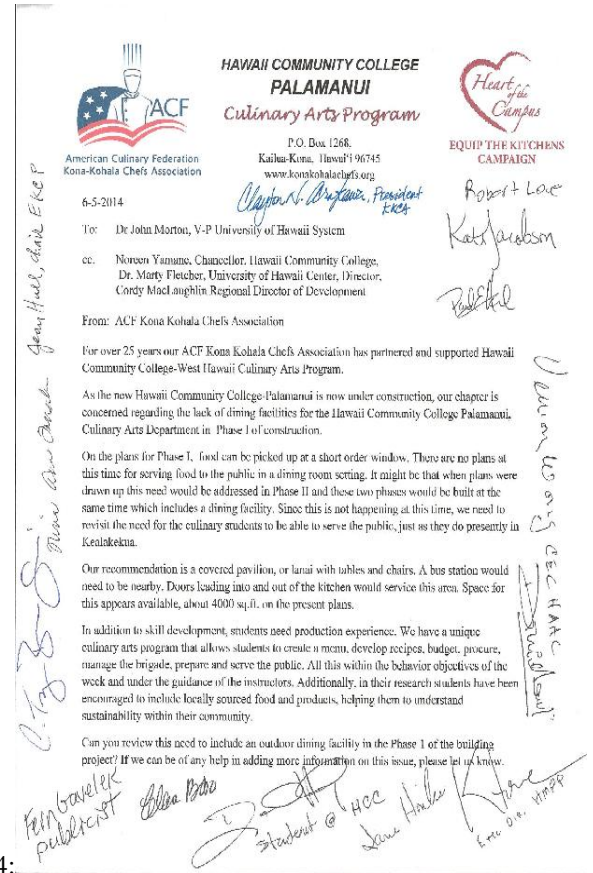 HAWAII COMMUNITY COLLEGE
PALAMANUI
Culinary Arts Program
ACF
American Culinary Federation
Kona-Kohala Chefs Association
Heart
of the
Campus
EQUIP THE KITCHENS
CAMPAIGN
P.O. Box 1268.
Kailua-Kona, Hawai'i 96745
www.konakohalachefs.org
President
KKCA
6-5-2014
To: Dr John Morton, V-P University of Hawaii System
cc. Noreen Yamane, Chancellor, Hawaii Community College,
Dr. Marty Fletcher, University of Hawaii Center, Director,
Cordy MacLaughlin Regional Director of Development
From: ACF Kona Kohala Chefs Association
For over 25 years our ACF Kona Kohala Chefs Association has partnered and supported Hawaii
Community College-West Hawaii Culinary Arts Program.
As the new Hawaii Community College-Palamanui is now under construction, our chapter is
concerned regarding the lack of dining facilities for the Hawaii Community College Palamanui,
Culinary Arts Department in Phase I of construction.
On the plans for Phase I, food can be picked up at a short order window. There are no plans at
this time for serving food to the public in a dining room setting. It might be that when plans were
drawn up this need would be addressed in Phase II and these two phases would be built at the
same time which includes a dining facility. Since this is not happening at this time, we need to
revisit the need for the culinary students to be able to serve the public, just as they do presently in
Kealakekua.
Our recommendation is a covered pavilion, or lanai with tables and chairs. A bus station would
need to be nearby. Doors leading into and out of the kitchen would service this area. Space for
this appears available, about 4000 sq.ft. on the present plans.
In addition to skill development, students need production experience. We have a unique
culinary arts program that allows students to create a menu, develop recipes, budget, procure,
manage the brigade, prepare and serve the public. All this within the behavior objectives of the
week and under the guidance of the instructors. Additionally, in their research students have been
encouraged to include locally sourced food and products, helping them to understand
sustainability within their community.
Can you review this need to include an outdoor dining facility in the Phase 1 of the building
project? If we can be of any help in adding more information on this issue, please let us know.
Robert Love
Jean Hull, chair EKCP
Fern Gavelek
publicist
Student @ HCC
4: